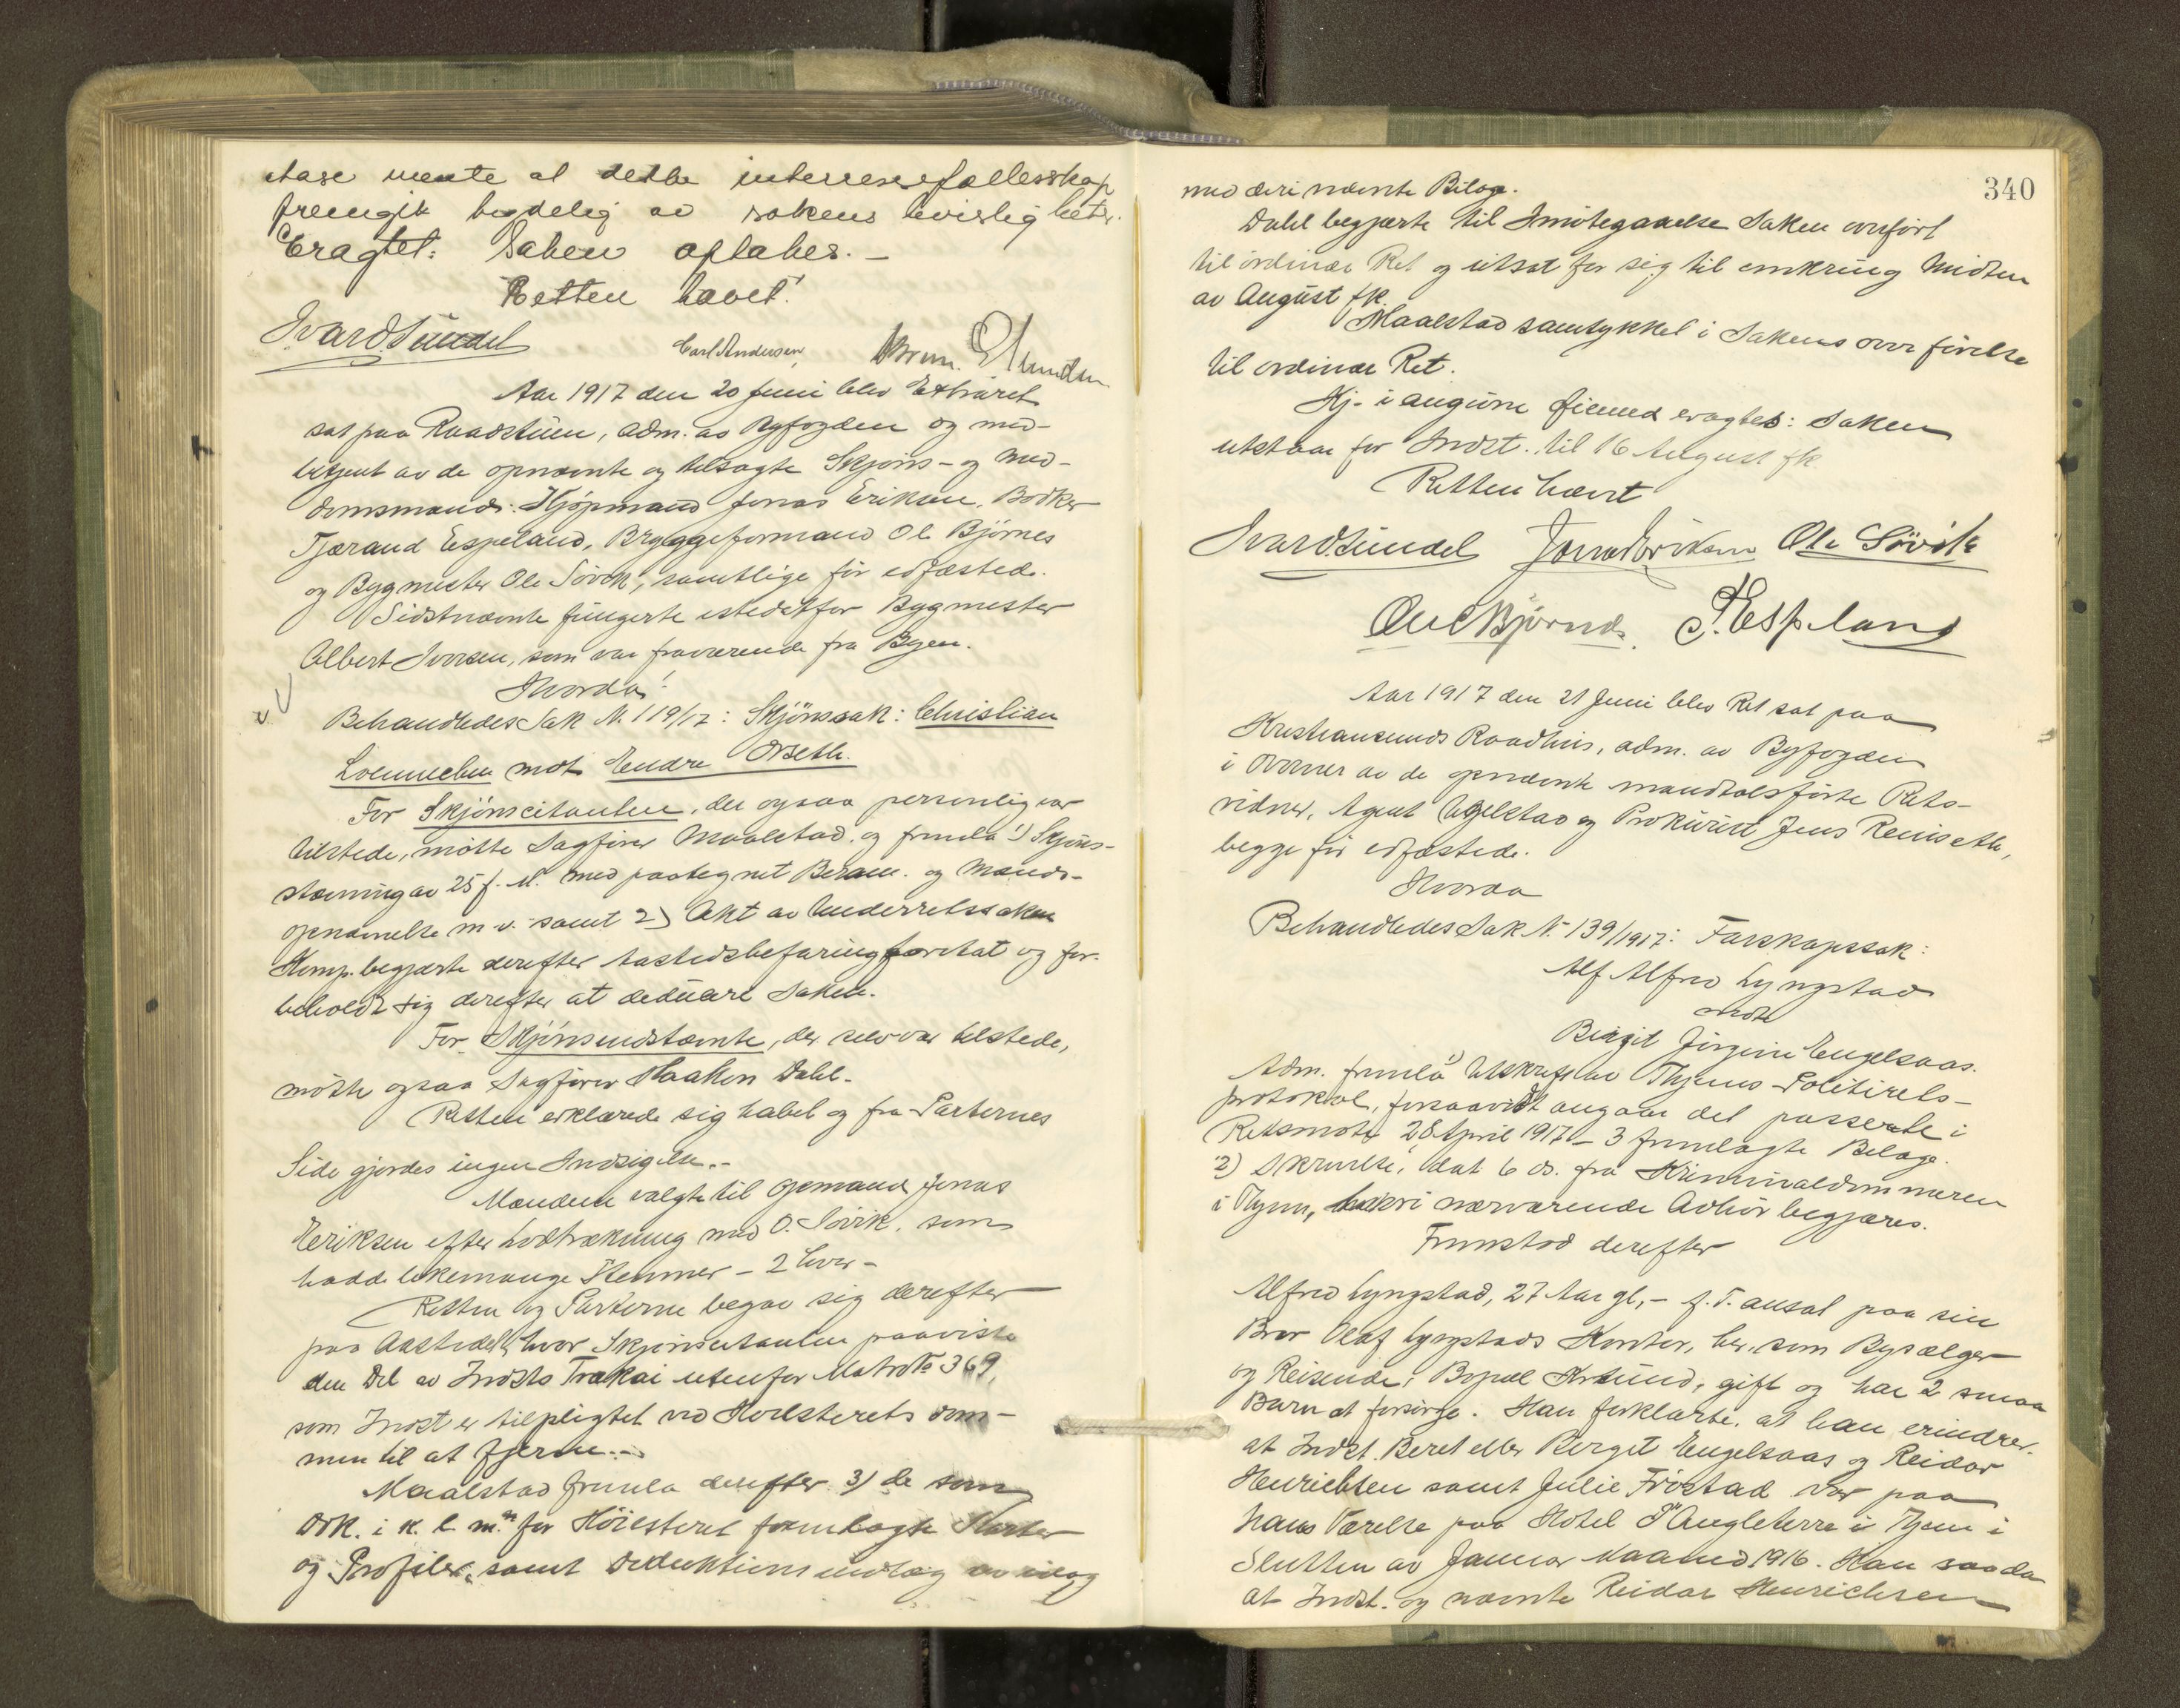 stase mente at dette interessefællesskap
fremgik tydelig av sakens beviseligheter.
Eragtet: Saken optakes. –
Retten hævet.
Ivar Sundel Carl Andersen
Aar 1917 den 20 Juni blev Extraret
sat paa Raadstuen, adm. av Byfogden og med-
betjent av de opnævnte og tilsagte Skjøns- og Med-
domsmænd: Kjøpmand Jonas Eriksen, Bødker
Tjærand Espeland, Bryggeformand Ole Bjørnes
og Bygmester Ole Søvik, samtlige før edfæstede.
Sidstnævnte fungerte istedetfor Bygmester
Albert Iversen, som var fraværende fra Byen.
Hvorda!
Behandledes Sak N. 119/17: Skjønssak: Christian
Loennechen mot Endre Orseth.
For Skjønscitanten, der ogsaa personlig var
tilstede, møtte Sagfører Maalstad og fremla 1) Skjøns-
stævning av 25 f. M. med paategnet Beram. og Mænds-
opnævnelse m. v. samt 2) Akt av Underretssaken
Komp. begjærte derefter Aastedsbefaring foretat og for-
beholdt sig derefter at deducere Saken.
For Skjønsindstævnte, der selv var tilstede,
møtte ogsaa Sagfører Haakon Dahl.
Retten erklærede sig habel og fra Parternes
Side gjordes ingen Indsigelse. –
Mændene valgte til Opmand Jonas
Eriksen efter Lodtrækning med O. Søvik, som
hadde likemange Stemmer – 2 hver –
Retten og Parterne begav sig derefter
paa Aastedet, hvor Skjønscitanten paaviste
den Del av Indsts Trækai utenfor Matr No 369,
som Indst er tilpligtet ved Høiesterets Dom-
men til at fjerne. –
Maalstad fremla derefter 3) de som
Dok. i k. l. m. for Høiesteret fremlagte Karter
og Profiler, samt Deduktionsindlæg
340
med deri nævnte Bilag.
Dahl begjærte til Imøtegaaelse Saken overført
til ordinær Ret og utsat for sig til omkring Midten
av August fk.
Maalstad samtykket i Sakens overførelse
til ordinær Ret.
Hj. i angivne Øiemed eragtes: Saken
utstaar for Indst. til 16 August fk.
Retten hævet
Ivar Sundel Jonas Eriksen Ole Søvik
Ole Bjørnes. T. Espeland
Aar 1917 den 21 Juni blev Ret sat paa
Kristiansunds Raadhus, adm. av Byfogden
i Overvær av de opnævnte mandtalsførte Rets-
vidner, Agent Ugelstad og Prokurist Jens Reinseth,
begge før edfæstede.
Hvorda
Behandledes Sak N. 139/1917: Farskapssak:
Alf Alfred Lyngstad
mot
Birgit Jørgine Engelsaas.
Adm. fremla 1) Utskrift av Thjems Politirets-
protokol, forsaavidt angaar det passerte i
Retsmøte 28 April 1917 – 3 fremlagte Bilage.
2) Skrivelse, dat 6 ds. fra Kriminaldommeren
i Thjem, hvori nærværende Avhør begjæres.
Fremstod derefter
Alfred Lyngstad, 27 Aar gl, – f. T. ansat paa sin
Bror Olaf Lyngstads Kontor, her, som Bysælger
og Reisende, Bopæl Krsund, gift og har 2 smaa
Barn at forsørge. Han forklarte, at han erindrer,
at Indst. Beret eller Berget Engelsaas og Reidar
Henrichsen samt Julie Frøstad var paa
hans Værelse paa Hotel d'Angleterre i Thjem i
Slutten av Januar Maaned 1916. Han saa da
at Indst. og nævnte Reidar Henrichsen